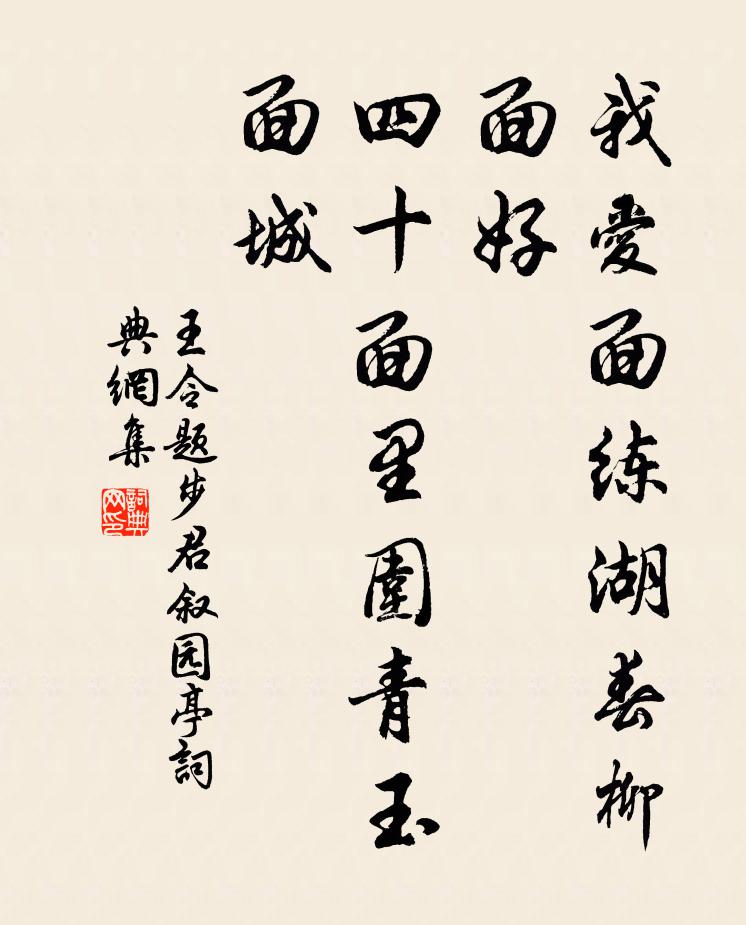 我愛面練湖春柳
面好
四十面里圍青玉
面城
王令题步君叙园亭詞
典網集
詞典网印